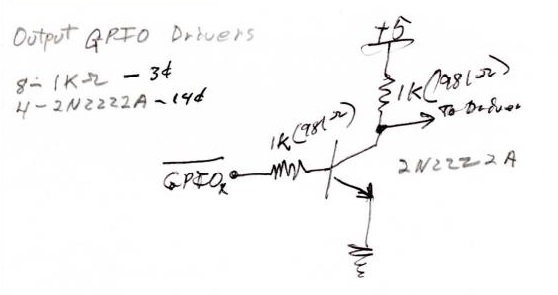 Output GPIO Drivers
8 - 1KΩ - 3¢
4 - 2N2222A - 14¢
+5
1K(981Ω)
To Driver
1K(981Ω)
GPIOx
2N2222A